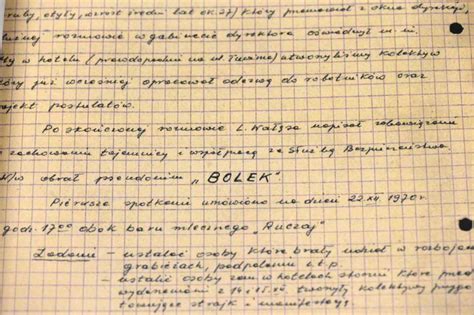 gruby, otyły, wzrost średni lat ok. 37) który przemawiał z okna dyrekcji,
rozmowie w gabinecie dyrektora oświadczył m. in.
w hotelu (prawdopodobnie na ul. ) utworzyliśmy kolektyw
który już wcześniej opracował odezwę do robotników oraz
projekt postulatów.
Po skończonej rozmowie L. Wałęsa napisał zobowiązanie
o zachowaniu tajemnicy i współpracy ze Służbą Bezpieczeństwa.
W/w obrał pseudonim „BOLEK"
Pierwsze spotkanie umówiono na dzień 22 XII 1970 r
godz. 17⁰⁰ obok baru mlecznego „Ruczaj"
Zadanie – ustalać osoby które brały udział w rozbojach
grabieżach, podpaleniu i.t.p
– ustalić osoby zam w hotelach stoczni które przed
wydarzeniami z 14 i 15.XII tworzyły kolektywy przygo
towujące strajk i manifestację.